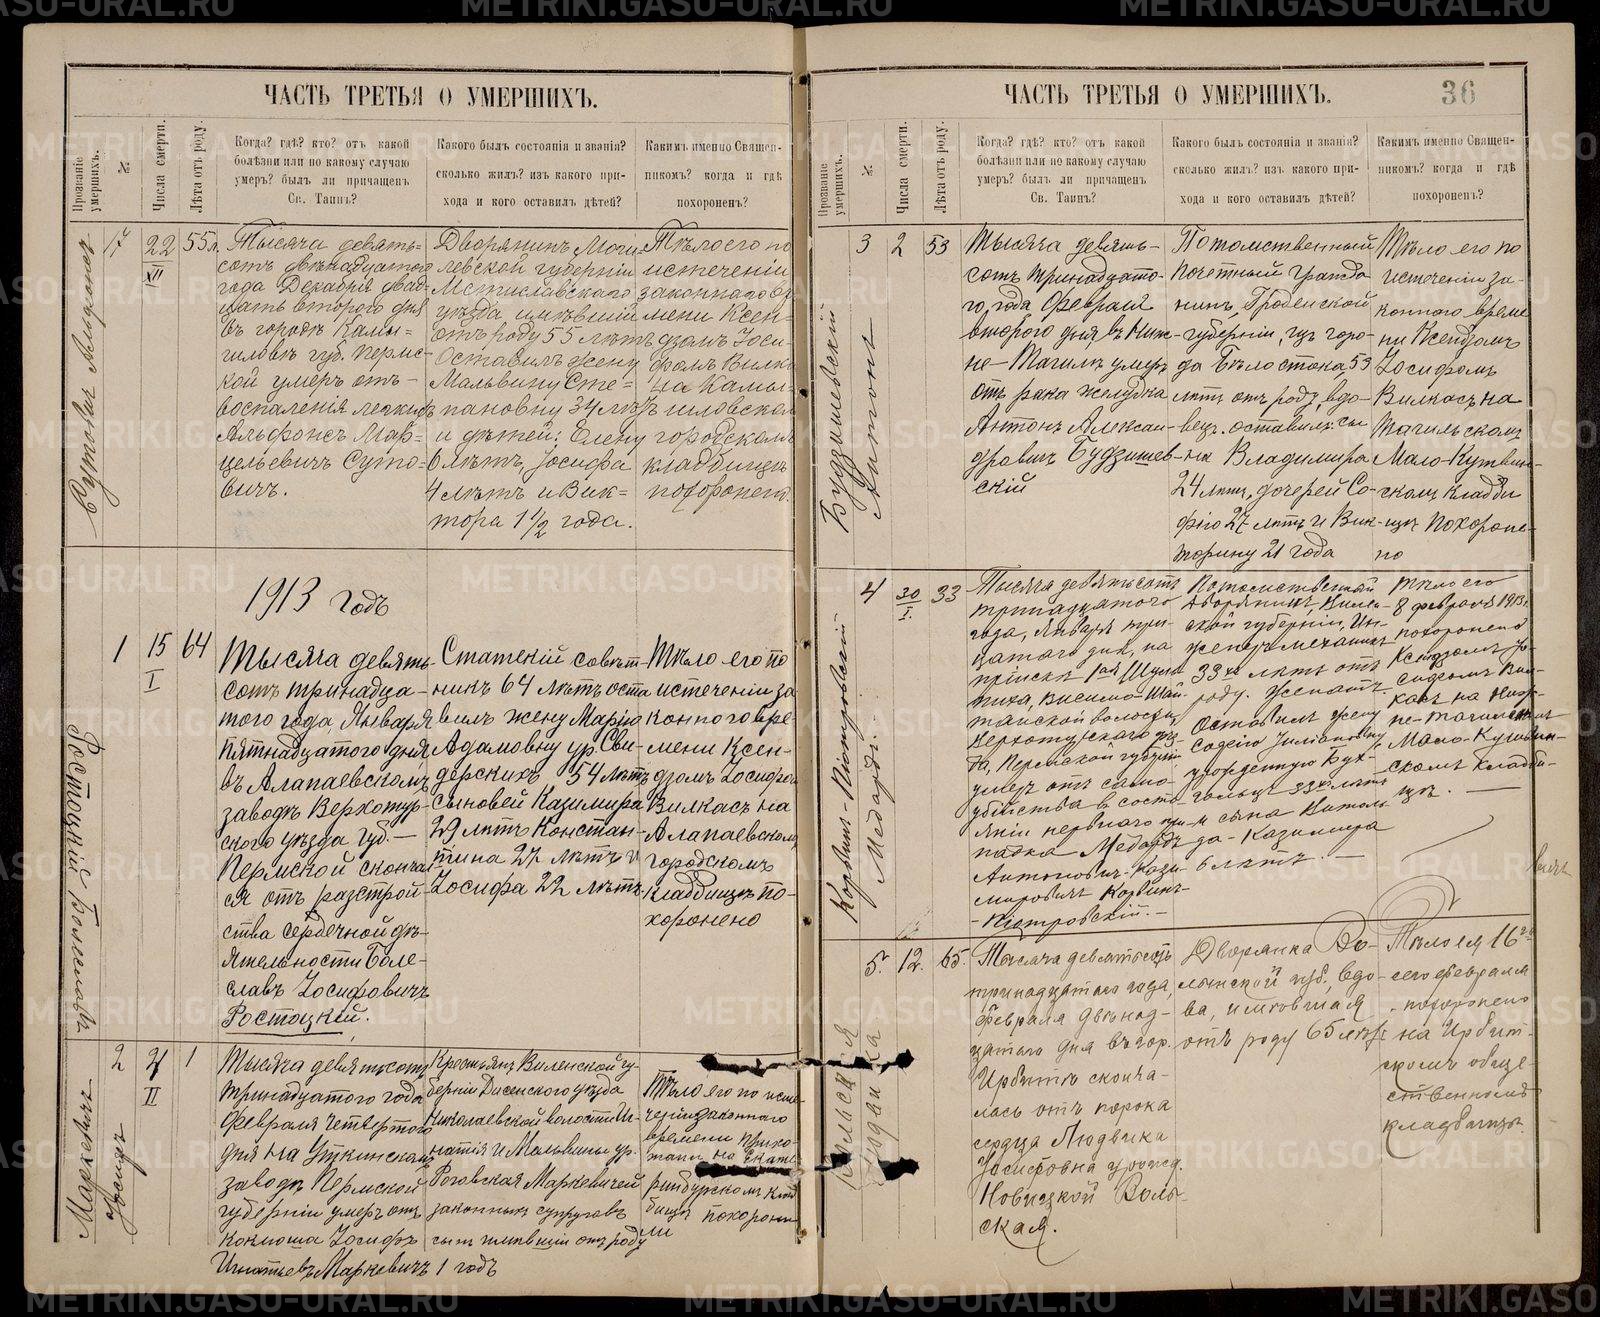 ЧАСТЬ ТРЕТЬЯ О УМЕРШИХЪ.
Прозваніе умершихъ.
№
Числа смерти.
Лѣта отъ роду.
Когда? гдѣ? кто? отъ какой
болѣзни или по какому случаю
умеръ? былъ ли причащенъ
Св. Таинъ?
Какого былъ состоянія и званія?
сколько жилъ? изъ какого при-
хода и кого оставилъ дѣтей?
Какимъ именно Священ-
никомъ? когда и гдѣ
похороненъ?
Сутовичъ Альфонсъ
17
22
XII
55 л.
Тысяча девять-
сотъ двѣнадцатого
года Декабря двад-
цать второго дня
въ городѣ Камы-
шловѣ губ. Перм-
ской умеръ отъ
воспаленія легкихъ
Альфонсъ Мар-
цельевичъ Суто-
вичъ.
Дворянинъ Моги-
левской губерніи
Мстиславскаго
уѣзда имѣвшій
отъ роду 55 лѣтъ
Оставилъ жену
Мальвину Сте-
пановну 34 лѣтъ
и дѣтей: Елену
6 лѣтъ, Іосифа
4 лѣтъ и Вик-
тора 1 1/2 года.
Тѣло его по
истеченіи
законнаго вре
мени Ксен-
дзомъ Іоси-
фомъ Вилк
на Камы-
шловском
городскомъ
кладбищѣ
похоронено
1913 годъ
Ростоцкій Болеславъ
1
15
I
64
Тысяча девять-
сотъ тринадца-
того года, Января
пятнадцатого дня
въ Алапаевскомъ
заводѣ Верхотур-
скаго уѣзда губ.
Пермской сконча
ся отъ разстрой-
ства сердечной дѣ-
ятельности Боле-
славъ Іосифовичъ
Ростоцкій.
Статскій совѣт-
никъ 64 лѣтъ оста
вилъ жену Марію
Адамовну ур. Сви-
дерскихъ 54 лѣтъ
сыновей Казимира
29 лѣтъ Констан-
тина 27 лѣтъ и
Іосифа 22 лѣтъ
Тѣло его по
истеченіи за
конного вре-
мени Ксен-
дзомъ Іосифом
Вилкасъ на
Алапаевском
городскомъ
кладбищѣ по-
хоронено
Маркевичъ
Іосифъ
2
4
II
1
Тысяча девятьсотъ
тринадцатого года
Февраля четвертого
дня на Уткинскомъ
заводѣ Пермской
губерніи умеръ отъ
коклюша Іосифъ
Игнатьевъ Маркевичъ
Крестьян Виленской гу-
берніи Дисенского уѣзда
Николаевской волости Иг-
натія и Мальвины ур.
Роговская Маркевичей
законныхъ супруговъ
сынъ имѣвшій отъ роду
1 годъ
Тѣло его по исте-
ченіи законнаго
времени прихо-
жани на Екате-
ринбургскомъ клад
бищѣ похорони
ли
ЧАСТЬ ТРЕТЬЯ О УМЕРШИХЪ.
36
Прозваніе умершихъ.
№
Числа смерти.
Лѣта отъ роду.
Когда? гдѣ? кто? отъ какой
болѣзни или по какому случаю
умеръ? былъ ли причащенъ
Св. Таинъ?
Какого былъ состоянія и званія?
сколько жилъ? изъ какого при-
хода и кого оставилъ дѣтей?
Какимъ именно Священ-
никомъ? когда и гдѣ
похороненъ?
Будзишевскій
Антонъ
3
2
53
Тысяча девять-
сотъ тринадцато-
го года Февраля
второго дня въ Ниж-
не-Тагилѣ умеръ
отъ рака желудка
Антонъ Алексан-
дровичъ Будзишев-
скій
Потомственный
почетный гражда
нинъ, Гродненской
губерніи, изъ горо-
да Бѣлостока 53
лѣтъ отъ роду, вдо-
вецъ. оставилъ: сы
на Владимира
24 лѣтъ, дочерей Со-
фію 27 лѣтъ и Вик-
торину 21 года
Тѣло его по
истеченіи за-
конного време
ни Ксендзомъ
Іосифомъ
Вилкасъ на
Тагильскомъ
Мало-Кутвин-
скомъ кладби
щѣ похороне-
но
Корвинъ-Піотровскій
Медардъ.
4
30
I.
33
Тысяча девятьсотъ
тринадцатого
года, Января три-
цатого дня, на
пріискѣ
Висимо-Шай-
танской волости,
Верхотурскаго уѣз-
да, Пермской губерніи
умеръ отъ само-
убійства въ состо-
яніи нервнаго при-
падка Медардъ
Антоновичъ-Кази-
мировичъ Корвинъ-
-Піотровскій.-
Потомственный
дворянинъ, Вилен-
ской губерніи, Ин-
женеръ механикъ
33хъ лѣтъ отъ
роду. Женатъ
Оставилъ жену
Софію Юліановну
урожденную Бух-
гольцъ 33хъ лѣтъ
и сына Витоль
да-Казимира
6 лѣтъ.-
Тѣло его
8 февраля 1913 г.
похоронено
Ксендзомъ Іо-
сифомъ Вил-
касъ на Ниж-
не-Тагильскомъ
Мало-Кутвин-
скомъ кладби-
щѣ.
5.
12.
65.
Тысяча девятьсотъ
тринадцатаго года,
Февраля двѣнад-
цатаго дня въ гор.
Ирбитѣ сконча-
лась отъ порока
сердца Людвика
Іосифовна урожд.
Новицкой Воль-
ская.
Дворянка Во-
лынской губ., вдо-
ва, имѣвшая
отъ роду 65 лѣтъ
Тѣло ея 16го
сего февраля
похоронено
на Ирбит-
скомъ обще-
ственномъ
кладбищѣ.
METRIKI.GASO-URAL.RU